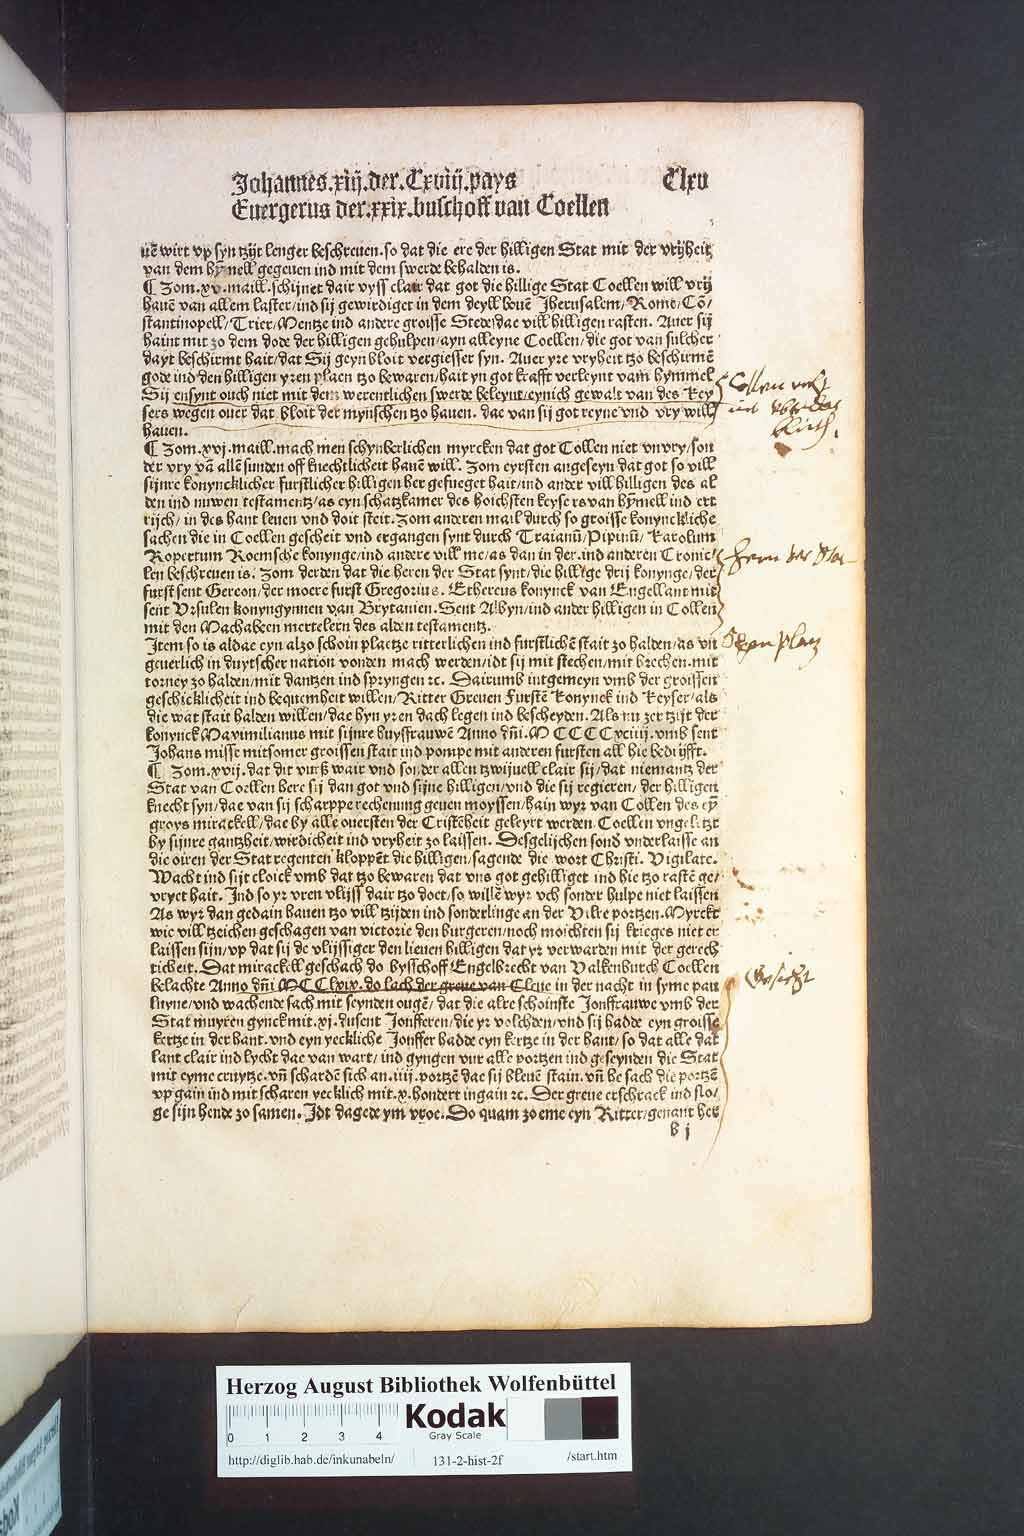 Johannes.xiij.der.Cxviij.pays Clxv
Euergerus der.xxix.buschoff van Coellen
uē wirt vp syn tzijt lenger beschreuen. so dat die ere der hilligen Stat mit der vrijheit
van dem hymell gegeuen ind mit dem swerde behalden is.
¶ Zom. xv. maill. schijnet dair vyss clair dat got die hillige Stat Coellen will vrij
hauē van allem laster/ ind sij gewirdiget in dem deyll bouē Jherusalem/ Rome/ Cō/
stantinopell/ Trier/ Mentze ind andere groisse Stede/ dae vill hilligen rasten. Auer sij
haint mit zo dem dode der hilligen gehulpen/ ayn alleyne Coellen/ die got van sulcher
dayt beschirmt hait/ dat Sij geyn bloit vergiesser syn. Auer yre vryheit tzo beschirmē
gode ind den hilligen yren plaen tzo bewaren/ hait yn got krafft verleynt vam hymmel
Sij ensynt ouch niet mit dem werentlichen swerde beleynt/ eynich gewalt van des Key
sers wegen ouer dat bloit der mynschen tzo hauen. dae van sij got reyne vnd vry will
hauen.
¶ Zom. xvj. maill. mach men schynberlichen myrcken dat got Collen niet vnvry/ son
der vry vā allē sunden off knechtlicheit hauē will. Zom eyrsten angeseyn dat got so vill
sijnre konyncklicher furstlicher hilligen her gefueget hait/ ind ander vill hilligen des al
den ind nuwen testamentz/ as eyn schatzkamer des hoichsten keysers van hȳmell ind ert
rijch/ in des hant leuen vnd doit steit. Zom anderen mail durch so groisse konynckliche
sachen die in Coellen gescheit vnd ergangen synt durch Traianū/ Pipinū/ Karolum
Ropertum Roemsche konynge/ ind andere vill me/ as dan in der. ind anderen Cronic/
ken beschreuen is. Zom derden dat die heren der Stat synt/ die hillige drij konynge/ der
furst sent Gereon/ der moere furst Gregorius. Ethereus konynck van Engellant mit
sent Vrsulen konyngynnen van Brytanien. Sent Albyn/ ind ander hilligen in Collen
mit den Machabeen mertelern des alden testamentz.
Item so is aldae eyn alzo schoin plaetze ritterlichen ind furstlichē stait zo halden/ as vn
geuerlich in duytscher nation vonden mach werden/ idt sij mit stechen/ mit brechen. mit
torney zo halden/ mit dantzen ind spryngen ꝛc. Dairumb intgemeyn vmb der groissen
geschicklicheit ind bequemheit willen/ Ritter Greuen Furstē Konynck ind Keyser/ als
die wat stait halden willen/ dae hyn yren dach legen ind bescheyden. Als nu zer tzijt der
konynck Maximilianus mit sijnre huysfrauwē Anno dn̄i. M CCCC xciiij. vmb sent
Johans misse mit somer groissen stait ind pompe mit anderen fursten all hie bedrijfft.
¶ Zom. xvij. dat dit vurß wair vnd sonder allen tzwijuell clair sij/ dat niemantz der
Stat van Coellen here sij dan got vnd sijne hilligen/ vnd die sij regieren/ der hilligen
knecht syn/ dae van sij scharppe rechenung geuen moyssen/ hain wyr van Collen des eȳ
groys mirackell/ dae by alle ouersten der Cristēheit geleyrt werden Coellen vngeletzt
by sijnre gantzheit/ wirdicheit ind vryheit zo laissen. Desgelijchen sond vnderlaisse an
die oiren der Stat regenten kloppēt die hilligen/ sagende die wort Christi. Vigilate.
Wacht ind sijt cloick vmb dat tzo bewaren dat vns got gehilliget ind hie tzo rastē ge/
vryet hait. Ind so yr vren vlijss dair tzo doet/ so willē wyr vch sonder hulpe niet laissen
As wyr dan gedain hauen tzo vill tzijden ind sonderlinge an der Vilre portzen. Myrckt
wie vill tzeichen geschagen van victorie den burgeren/ noch moichten sij krieges niet er
laissen sijn/ vp dat sij de vlijssiger den lieuen hilligen dat yr verwarden mit der gerech
ticheit. Dat mirackell geschach do bysschoff Engelbrecht van Valkenburch Coellen
belachte Anno dn̄i MCClxix. do lach der greue van Cleue in der nacht in syme pau
luyne/ vnd wachende sach mit seynden ougē/ dat die alre schoinste Jonffrauwe vmb der
Stat muyren gynck mit. xj. dusent Jonfferen/ die yr volchden/ vnd sij hadde eyn groisse
kertze in der hant. vnd eyn yeckliche Jonffer hadde eyn kertze in der hant/ so dat alle dat
lant clair ind lycht dae van wart/ ind gyngen vur alle portzen ind geseynden die Stat
mit eyme cruytze. vn̄ schardē sich an. iiij. portzē dae sij bleuē stain. vn̄ he sach die portzē
vp gain ind mit scharen yecklich mit. x. hondert ingain ꝛc. Der greue erschrack ind slo/
ge sijn hende zo samen. Idt dagede ym vroe. Do quam zo eme eyn Ritter/ genant her
B j
Herzog August Bibliothek Wolfenbüttel
0 1 2 3 4
Kodak
Gray Scale
http://diglib.hab.de/inkunabeln/ 131-2-hist-2f /start.htm